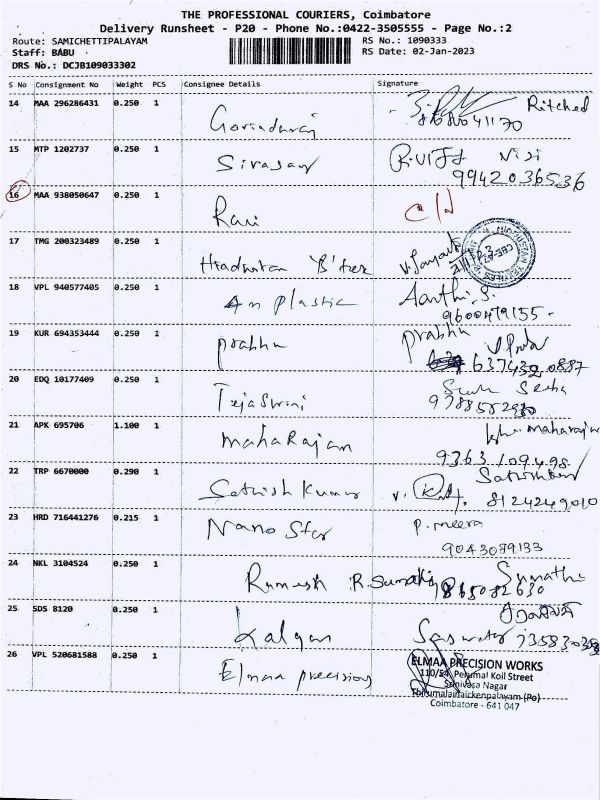 THE PROFESSIONAL COURIERS, Coimbatore
Delivery Runsheet - P20 - Phone No.:0422-3505555 - Page No.:2
Route: SAMICHETTIPALAYAM RS No.: 1090333
Staff: BABU RS Date: 02-Jan-2023
DRS No.: DCJB109033302
S No Consignment No Weight PCS Consignee Details Signature
14 MAA 296286431 0.250 1 Govindaraj
15 MTP 1202737 0.250 1 Sivasan 9942036536
16 MAA 938050647 0.250 1 Ravi
17 TMG 200323489 0.250 1
18 VPL 940577405 0.250 1 Am plastic Aarthi.S.
9600479155
19 KUR 694353444 0.250 1 prabhu prabhu
20 EDQ 10177409 0.250 1 Tejaswini
21 APK 695706 1.100 1 mahaRajan maharajan
22 TRP 6670000 0.290 1 Sathish Kumar 8124249010
23 HRD 716441276 0.215 1 Nano Star P. meera
9043079133
24 NKL 3104524 0.250 1 Ramesh Sumathi
25 SDS 8120 0.250 1 Kalyan
26 VPL 520681588 0.250 1 Elmaa precision
ELMAA PRECISION WORKS
110/54, Perumal Koil Street
Srinivasa Nagar
(Po)
Coimbatore - 641 047